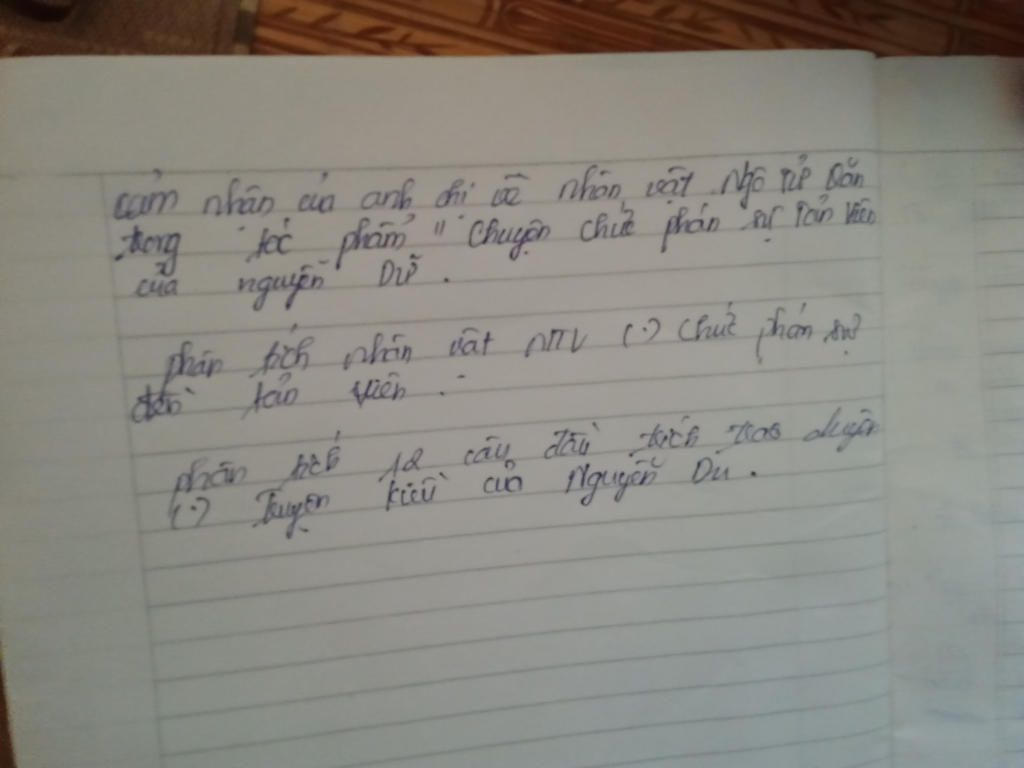 cảm nhân của anh chi về nhân vật Ngô Tử Văn
trong tác phẩm " Chuyện chức phán sự Tản Viên
của nguyễn Dữ .
phân tích nhân vật NTV (.) Chức phán sự
đền tản viên .
phân tích 12 câu đầu trích trao duyên
(.) Truyện kiều của Nguyễn Du .